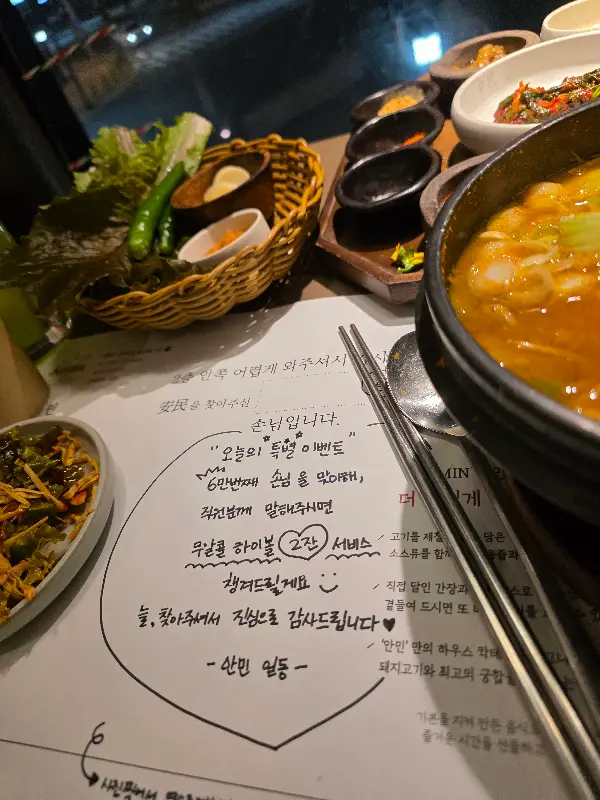 2층 안쪽 어렵게 와주셔서
安民을 찾아주신
손님입니다.
"오늘의 특별 이벤트"
6만번째 손님을 맞이해,
직원분께 말해주시면
무알콜 하이볼 2잔 서비스
챙겨드릴게요
늘, 찾아주셔서 진심으로 감사드립니다♥
- 안민 일동 -
MIN
더
고기를
소스류를
직접 달인 간장과
곁들여 드시면 또
'안민' 만의 하우스 칵테
돼지고기와 최고의 궁합을
기본을 지켜 만든 음식으
즐거운 시간을 선물하고